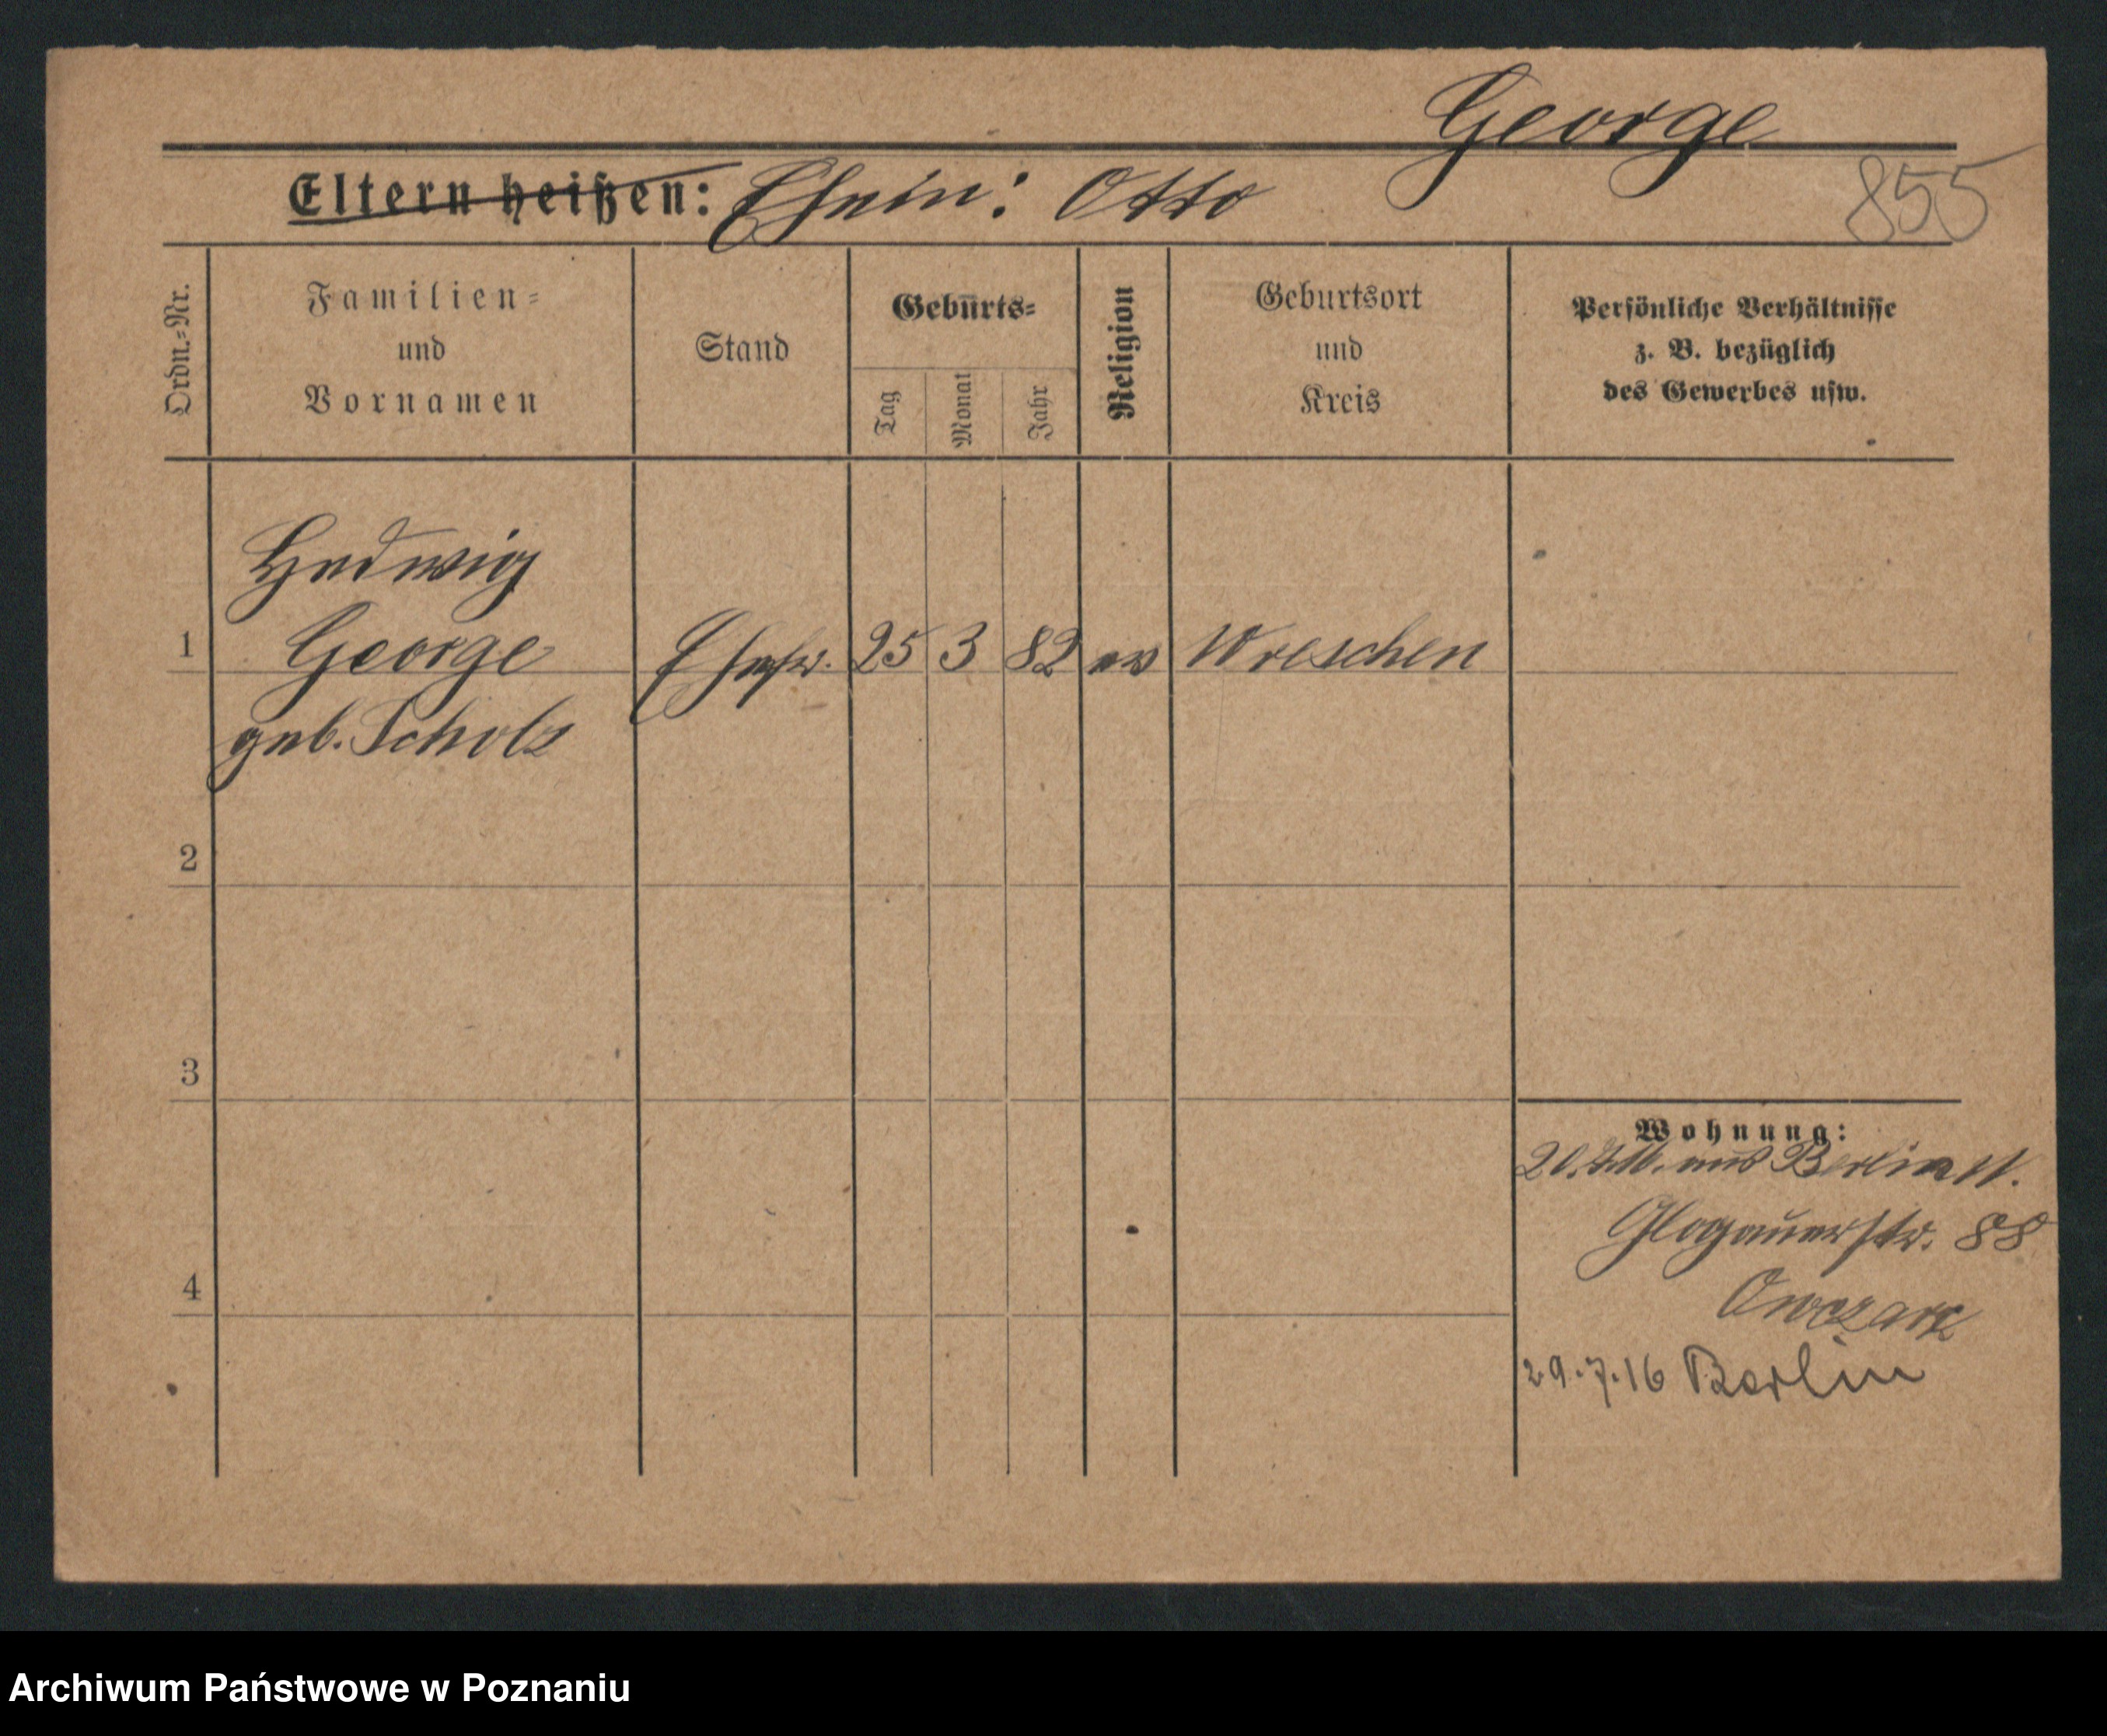 George
855
Eltern heißen: Ehem: Otto
Ordn.-Nr.
Familien-
und
Vornamen
Stand
Geburts-
Tag
Monat
Jahr
Religion
Geburtsort
und
Kreis
Persönliche Verhältnisse
z. B. bezüglich
des Gewerbes usw.
Hedwig
1 George Ehefr. 25 3 82 ev Wreschen
geb. Scholz
2
3
4
Wohnung:
aus Berlin
Glogauerstr. 88
Owczarz
29.7.16 Berlin
Archiwum Państwowe w Poznaniu